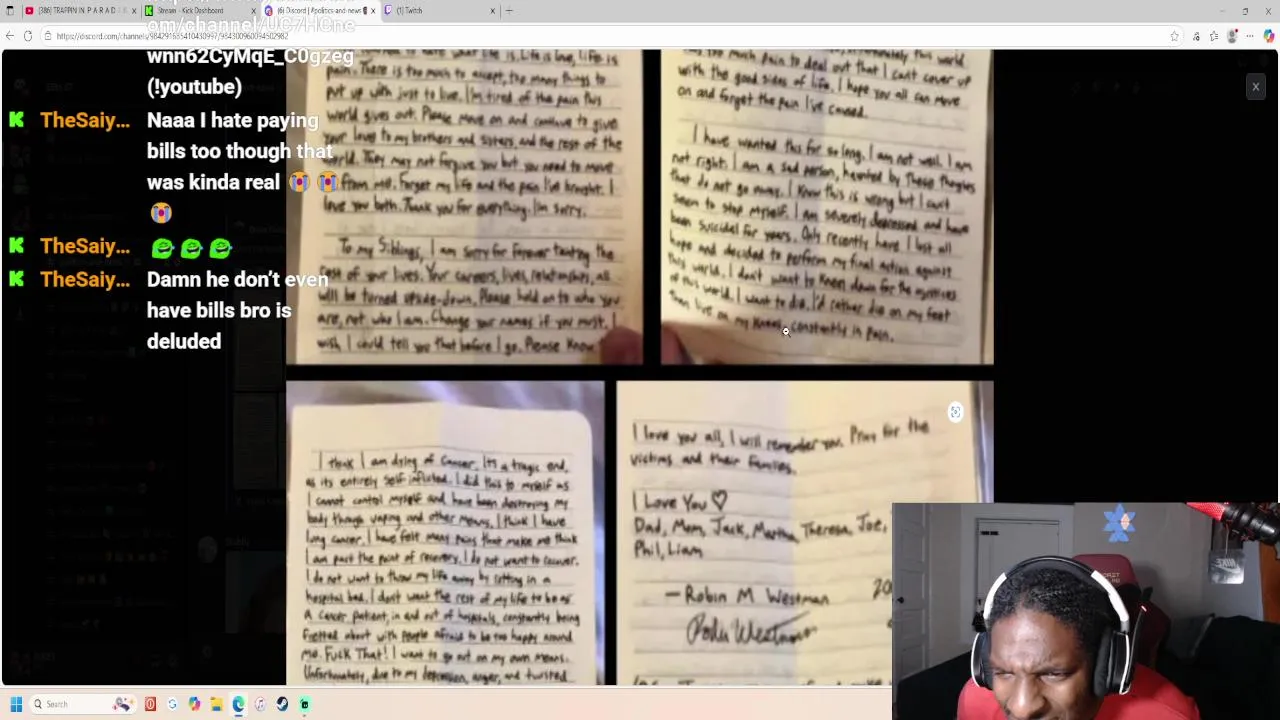 (386) TRAPPIN IN P A R A D I
Stream - Kick Dashboard
Discord | #politics-and-news
(1) Twitch
https://discord.com/channels/984291685410430997/984300960094502982
om/channel/UC7HCne
wnn62CyMqE_C0gzeg
(!youtube)
TheSaiy... Naaa I hate paying
bills too though that
was kinda real 😭 😭
😭
TheSaiy...
TheSaiy... Damn he don't even
have bills bro is
deluded
pain. There is too much to accept, too many things to
put up with just to live. I'm tired of the pain this
world gives out. Please move on and continue to give
your love to my brothers and sisters, and the rest of the
world. They may not forgive you but you need to move
from me. Forget my life and the pain I've brought. I
love you both. Thank you for everything. I'm sorry.
To my Siblings, I am sorry for forever tainting the
rest of your lives. Your careers, lives, relationships, all
will be turned upside-down. Please hold on to who you
are, not who I am. Change your names if you must. I
wish I could tell you that before I go. Please know
too much pain to deal out that I can't cover up
with the good sides of life. I hope you all can move
on and forget the pain I've caused.
I have wanted this for so long. I am not well. I am
not right. I am a sad person, haunted by these thoughts
that do not go away. I know this is wrong but I can't
seem to stop myself. I am severely depressed and have
been suicidal for years. Only recently have I lost all
hope and decided to perform my final action against
this world. I don't want to kneel down for the
of this world. I want to die. I'd rather die on my feet
then live on my knees, constantly in pain.
I think I am dying of cancer. It's a tragic end,
as its entirely self inflicted. I did this to myself as
I cannot control myself and have been destroying my
body through vaping and other means. I think I have
lung cancer. I have felt many pains that make me think
I am past the point of recovery. I do not want to recover.
I do not want to throw my life away by sitting in a
hospital bed. I dont want the rest of my life to be as
a cancer patient, in and out of hospitals, constantly being
fretted about with people afraid to be too happy around
me. FUCK THAT! I want to go out on my own means.
Unfortunately, due to my depression, anger, and twisted
I love you all, I will remember you. Pray for the
victims and their families.
I Love You ♡
Dad, Mom, Jack, Martha, Theresa, Joe,
Phil, Liam
— Robin M Westman
Search